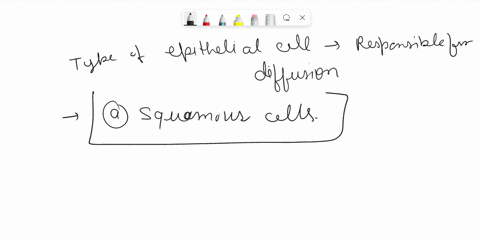 Type of epithelial cell → Responsible for
diffusion
→ ⓐ Squamous cells.